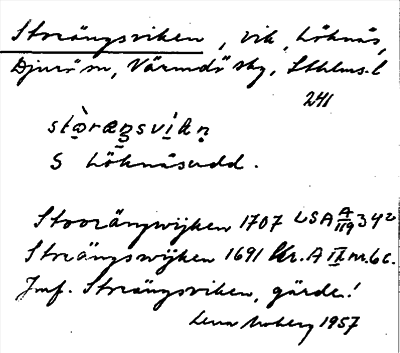 Storängsviken, vik, Löknäs,
Djurö sn, Värmdö skg, Sthlms. l
241
stòræŋsvìkṇ
S Löknäsudd.
Stoorängwijken 1707 LSA A/119 342
Storängswijken 1691 Kr. A II nr. 6 c.
Jmf. Storängsviken, gärde!
Lena Moberg 1957